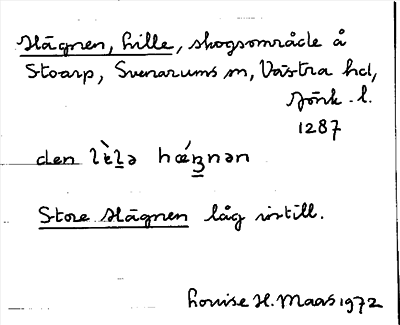 Hägnen, Lille, skogsområde å
Stoarp, Svenarums sn, Västra hd,
Jönk. l.
1287
den lὲlə hœ́ŋnən
Store Hägnen låg intill.
Louise H. Maas 1972